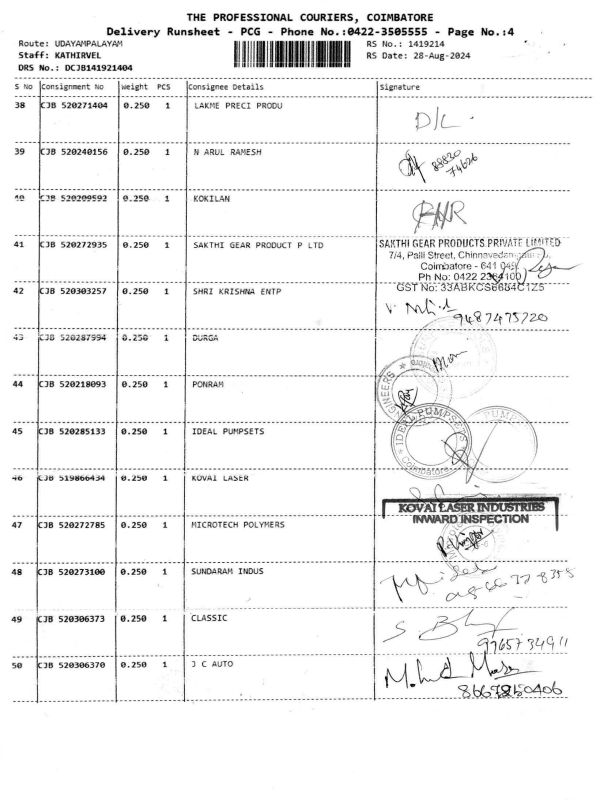 THE PROFESSIONAL COURIERS, COIMBATORE
Delivery Runsheet - PCG - Phone No.:0422-3505555 - Page No.:4
Route: UDAYAMPALAYAM RS No.: 1419214
Staff: KATHIRVEL RS Date: 28-Aug-2024
DRS No.: DCJB141921404
S No Consignment No Weight PCS Consignee Details Signature
38 CJB 520271404 0.250 1 LAKME PRECI PRODU
D/L
39 CJB 520240156 0.250 1 N ARUL RAMESH
40 CJB 520209592 0.250 1 KOKILAN
41 CJB 520272935 0.250 1 SAKTHI GEAR PRODUCT P LTD SAKTHI GEAR PRODUCTS PRIVATE LIMITED
7/4, Palli Street,
Coimbatore - 641 049.
Ph No: 0422
GST No: 33ABKCS6684C1Z5
42 CJB 520303257 0.250 1 SHRI KRISHNA ENTP
9487475720
43 CJB 520287994 0.250 1 DURGA
44 CJB 520218093 0.250 1 PONRAM
45 CJB 520285133 0.250 1 IDEAL PUMPSETS IDEAL PUMPSETS
Coimbatore
46 CJB 519866434 0.250 1 KOVAI LASER
KOVAI LASER INDUSTRIES
INWARD INSPECTION
47 CJB 520272785 0.250 1 MICROTECH POLYMERS
48 CJB 520273100 0.250 1 SUNDARAM INDUS
49 CJB 520306373 0.250 1 CLASSIC
9765734911
50 CJB 520306370 0.250 1 J C AUTO